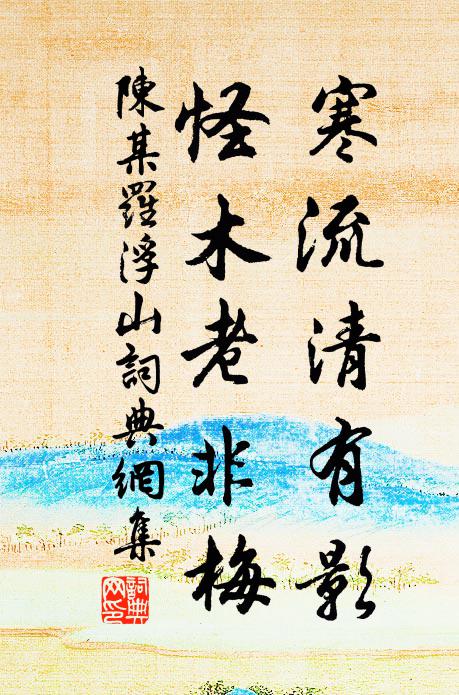 寒流清有影
怪木老非梅
陳某羅浮山詞典網集
詞典